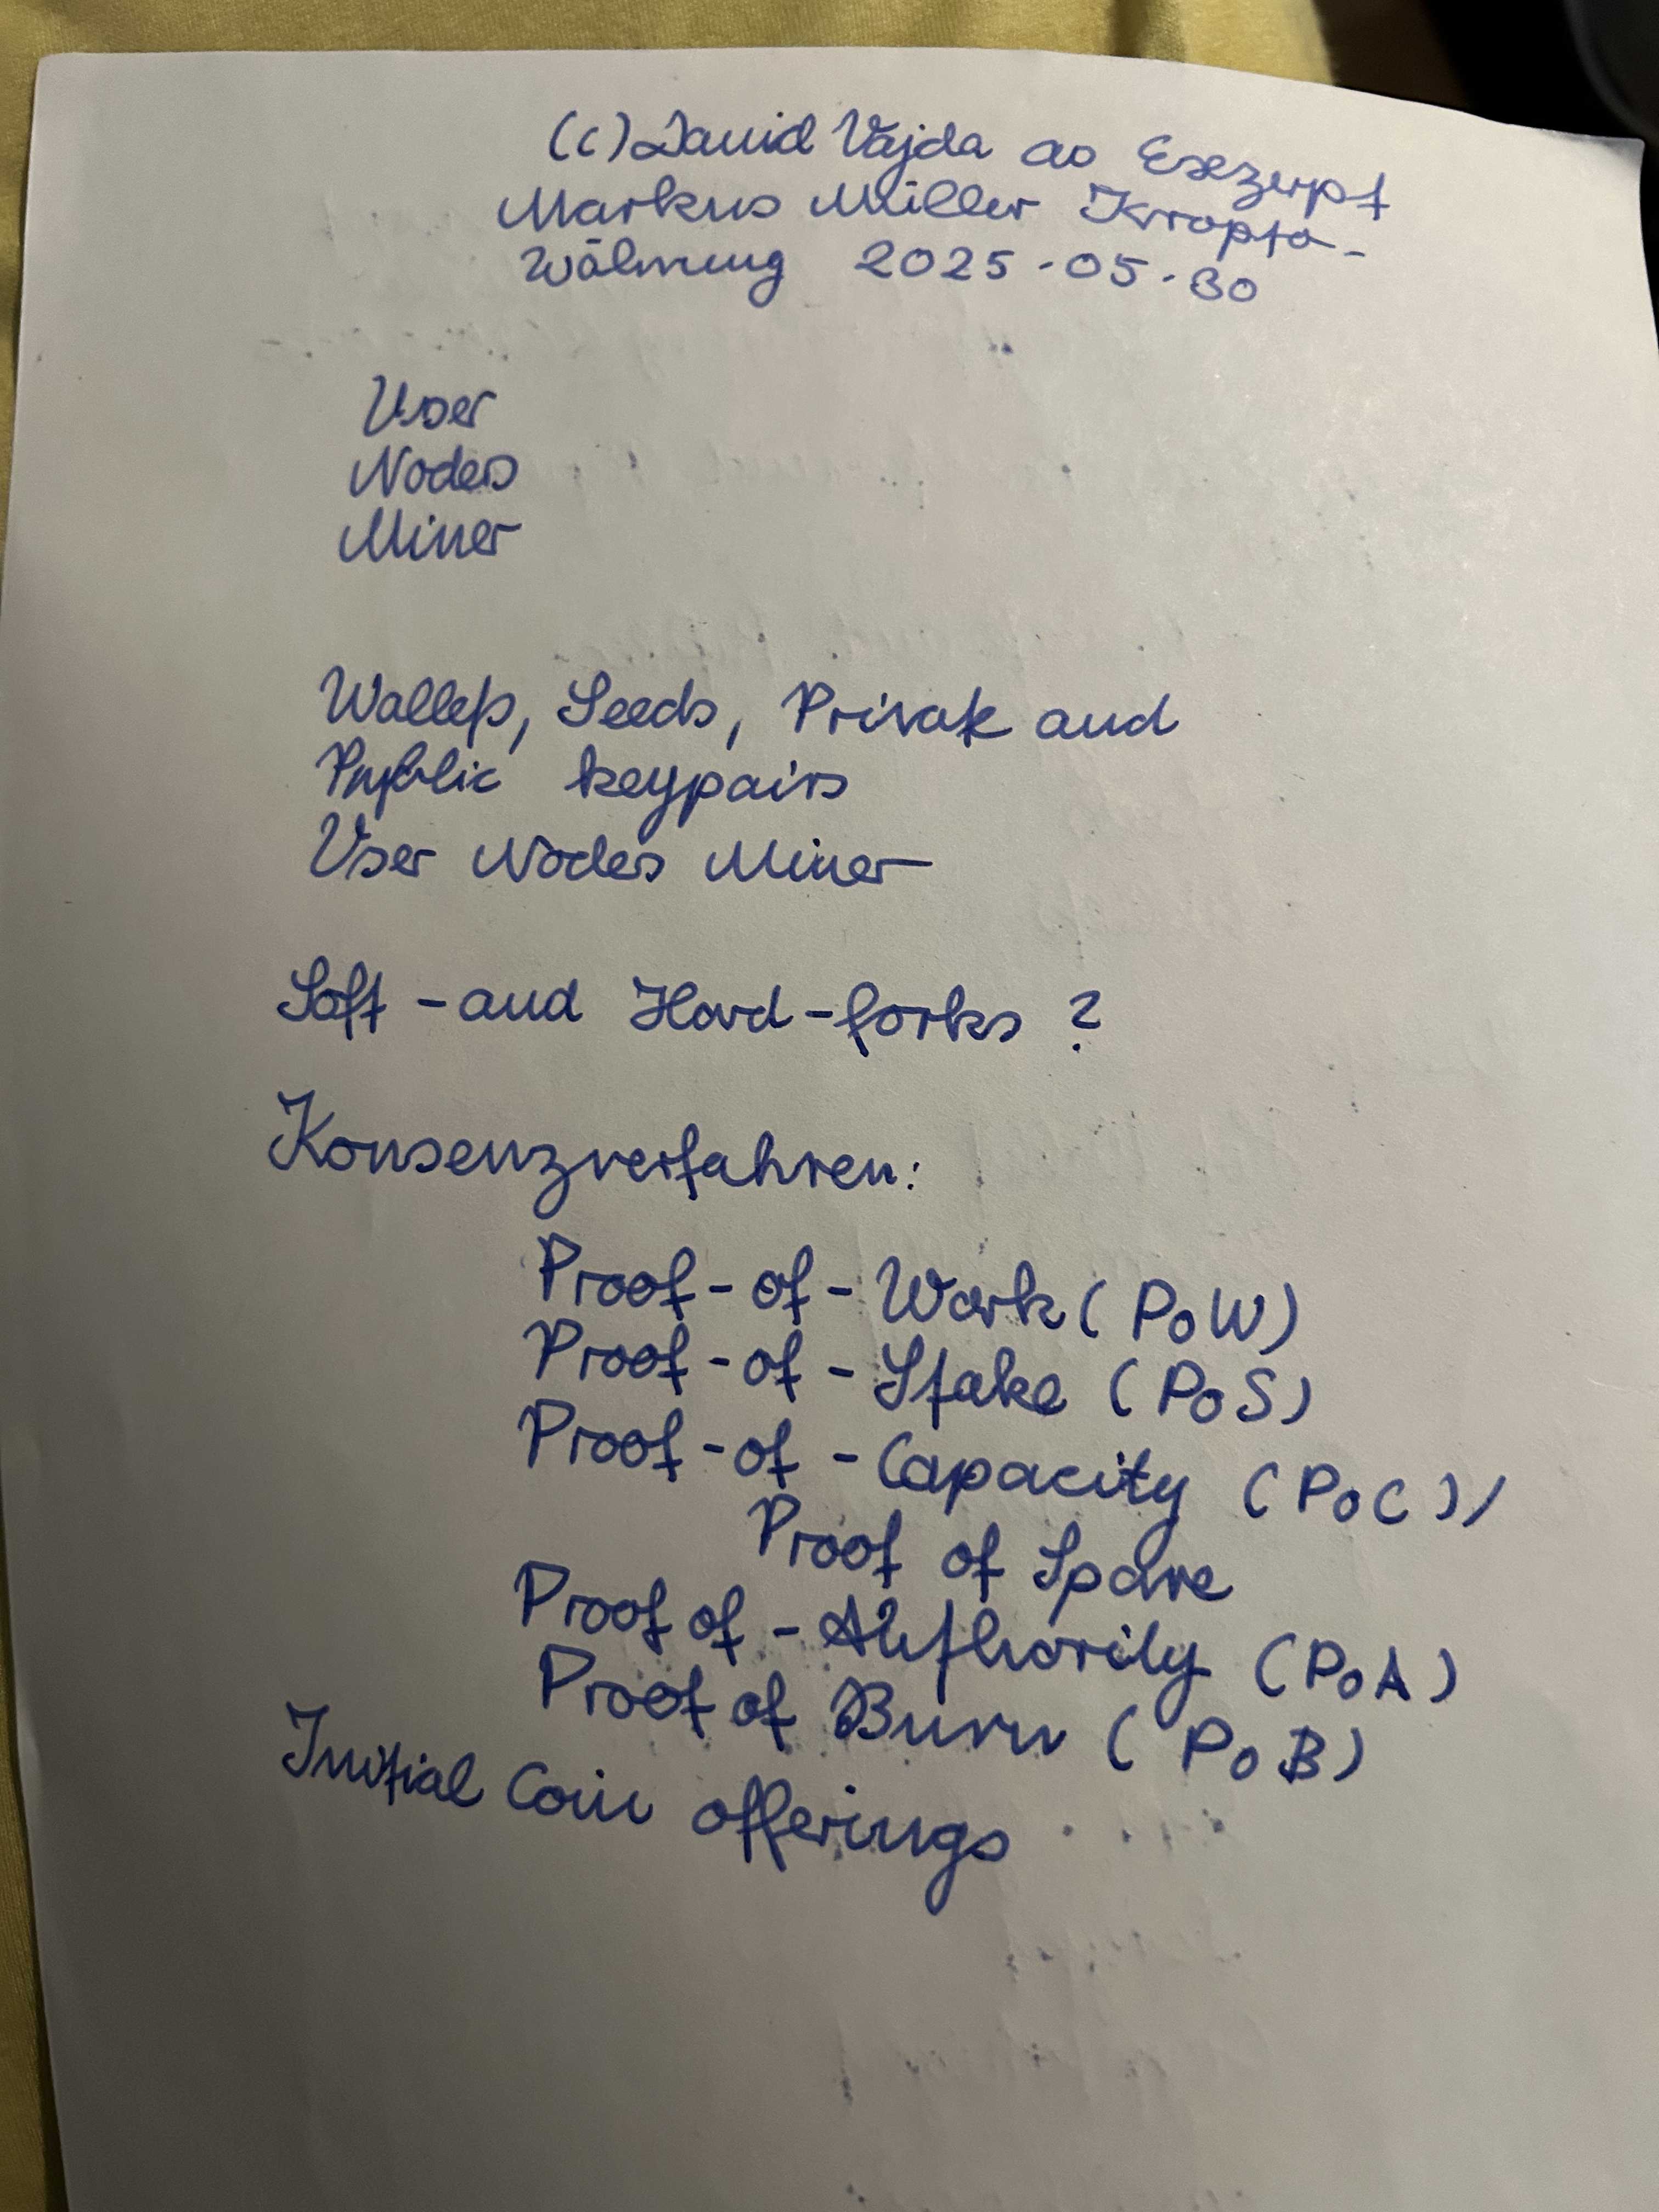 (c) David Vajda as Exezerpt
Markus Müller Krypto-
Währung 2025-05-30
User
Nodes
Miner
Wallets, Seeds, Private and
Public keypairs
User Nodes Miner
Soft - and Hard-forks ?
Konsenzverfahren:
Proof-of-Work (PoW)
Proof-of-Stake (PoS)
Proof-of-Capacity (PoC)/
Proof of Space
Proof of-Authority (PoA)
Proof of Burn (PoB)
Initial Coin offerings